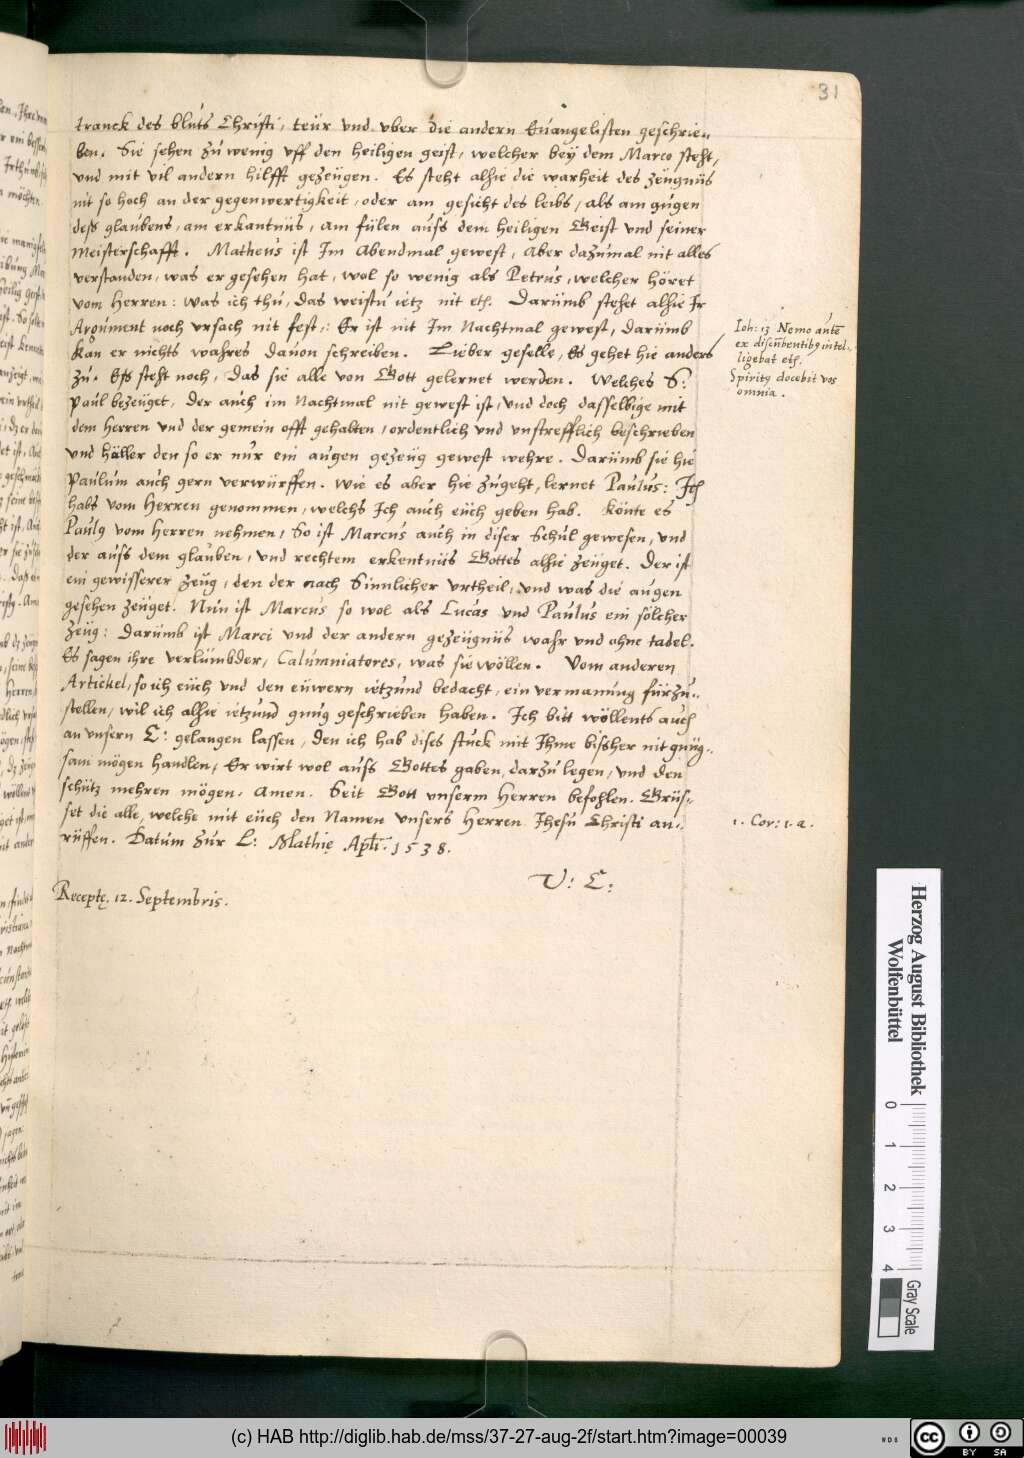 31
tranck des bluts Christi, teür vnd vber die andern Euangelisten geschrie„
ben. Sie sehen zu wenig vff den heiligen geist, welcher beÿ dem Marco steht,
vnd mit vil andern hilfft gezeügen. Es steht alhie die warheit des zeugnüs
nit so hoch an der gegenwertigkeit, oder am gesicht des leibs, als am augen
deß glaubens, am erkantnüs, am fülen aufs dem heiligen Geist vnd seiner
meisterschafft. Matheus ist Im Abendmal gewest, aber dazumal nit alles
verstanden, was er gesehen hat, wol so wenig als Petrus, welcher höret
vom Herren: was ich thu, das weistu ietz nit etc. Darümb stehet alhie Ir
Argument noch vrsach nit fest,: Er ist nit Im Nachtmal gewest, darümb
kan er nichts wahres dauon schreiben. Lieber geselle, Es gehet hie anders
zu. Efs steht noch, das sie alle von Gott gelernet werden. Welches S:
Paul bezeüget, der auch im Nachtmal nit gewest ist, vnd doch dasselbige mit
dem Herren vnd der gemein offt gehalten, ordentlich vnd vnstrefflich beschrieben
vnd häller den so er nur ein augen gezeüg gewest wehre. Darümb sie hie
Paulum auch gern verwürffen. Wie es aber hie zugeht, lernet Paulus: Ich
habs vom Herren genommen, welchs Ich auch eüch geben hab. Könte es
Paulus vom Herren nehmen, So ist Marcus auch in diser Schul gewesen, vnd
der aufs dem glauben, vnd rechtem erkentnüs Gottes alhie zeüget. Der ist
ein gewisserer zeüg, den der nach Sinnlicher vrtheil, vnd was die augen
gesehen zeüget. Nun ist Marcus so wol als Lucas vnd Paulus ein sölcher
zeüg: darümb ist Marci vnd der andern gezeügnüs wahr vnd ohne tadel.
Es sagen ihre verlümbder, Calumniatores, was sie wöllen. Vom anderen
Artickel, so ich eüch vnd den eüwern ietzund bedacht, ein vermanung fürzu„
stellen, wil ich alhie ietzund gnug geschrieben haben. Ich bitt wöllents auch
an vnsern C: gelangen lassen, den ich hab dises stuck mit Ihme bißher nit gnüg„
sam mögen handlen, Er wirt wol aufs Gottes gaben darzu legen, vnd den
schütz mehren mögen. Amen. Seit Gott vnserm Herren befohlen. Grüs„
set die alle, welche mit eüch den Namen vnsers Herren Ihesu Christi an„
rüffen. Datum zur L: Mathię Apli. 1538.
V: C:
Receptę. 12. Septembris.
Ioh: 13 Nemo autē
ex discūbentibus intel„
ligebat etc.
Spiritus docebit vos
omnia.
1. Cor: 1. a.
Herzog August Bibliothek
Wolfenbüttel
0 1 2 3 4
Gray Scale
(c) HAB http://diglib.hab.de/mss/37-27-aug-2f/start.htm?image=00039
WDB
cc BY SA